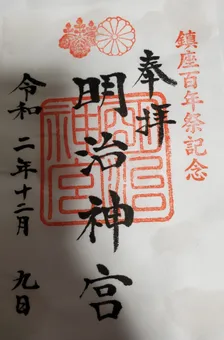 鎮座百年祭記念
奉拝
明治神宮
令和二年十二月九日
明治神宮